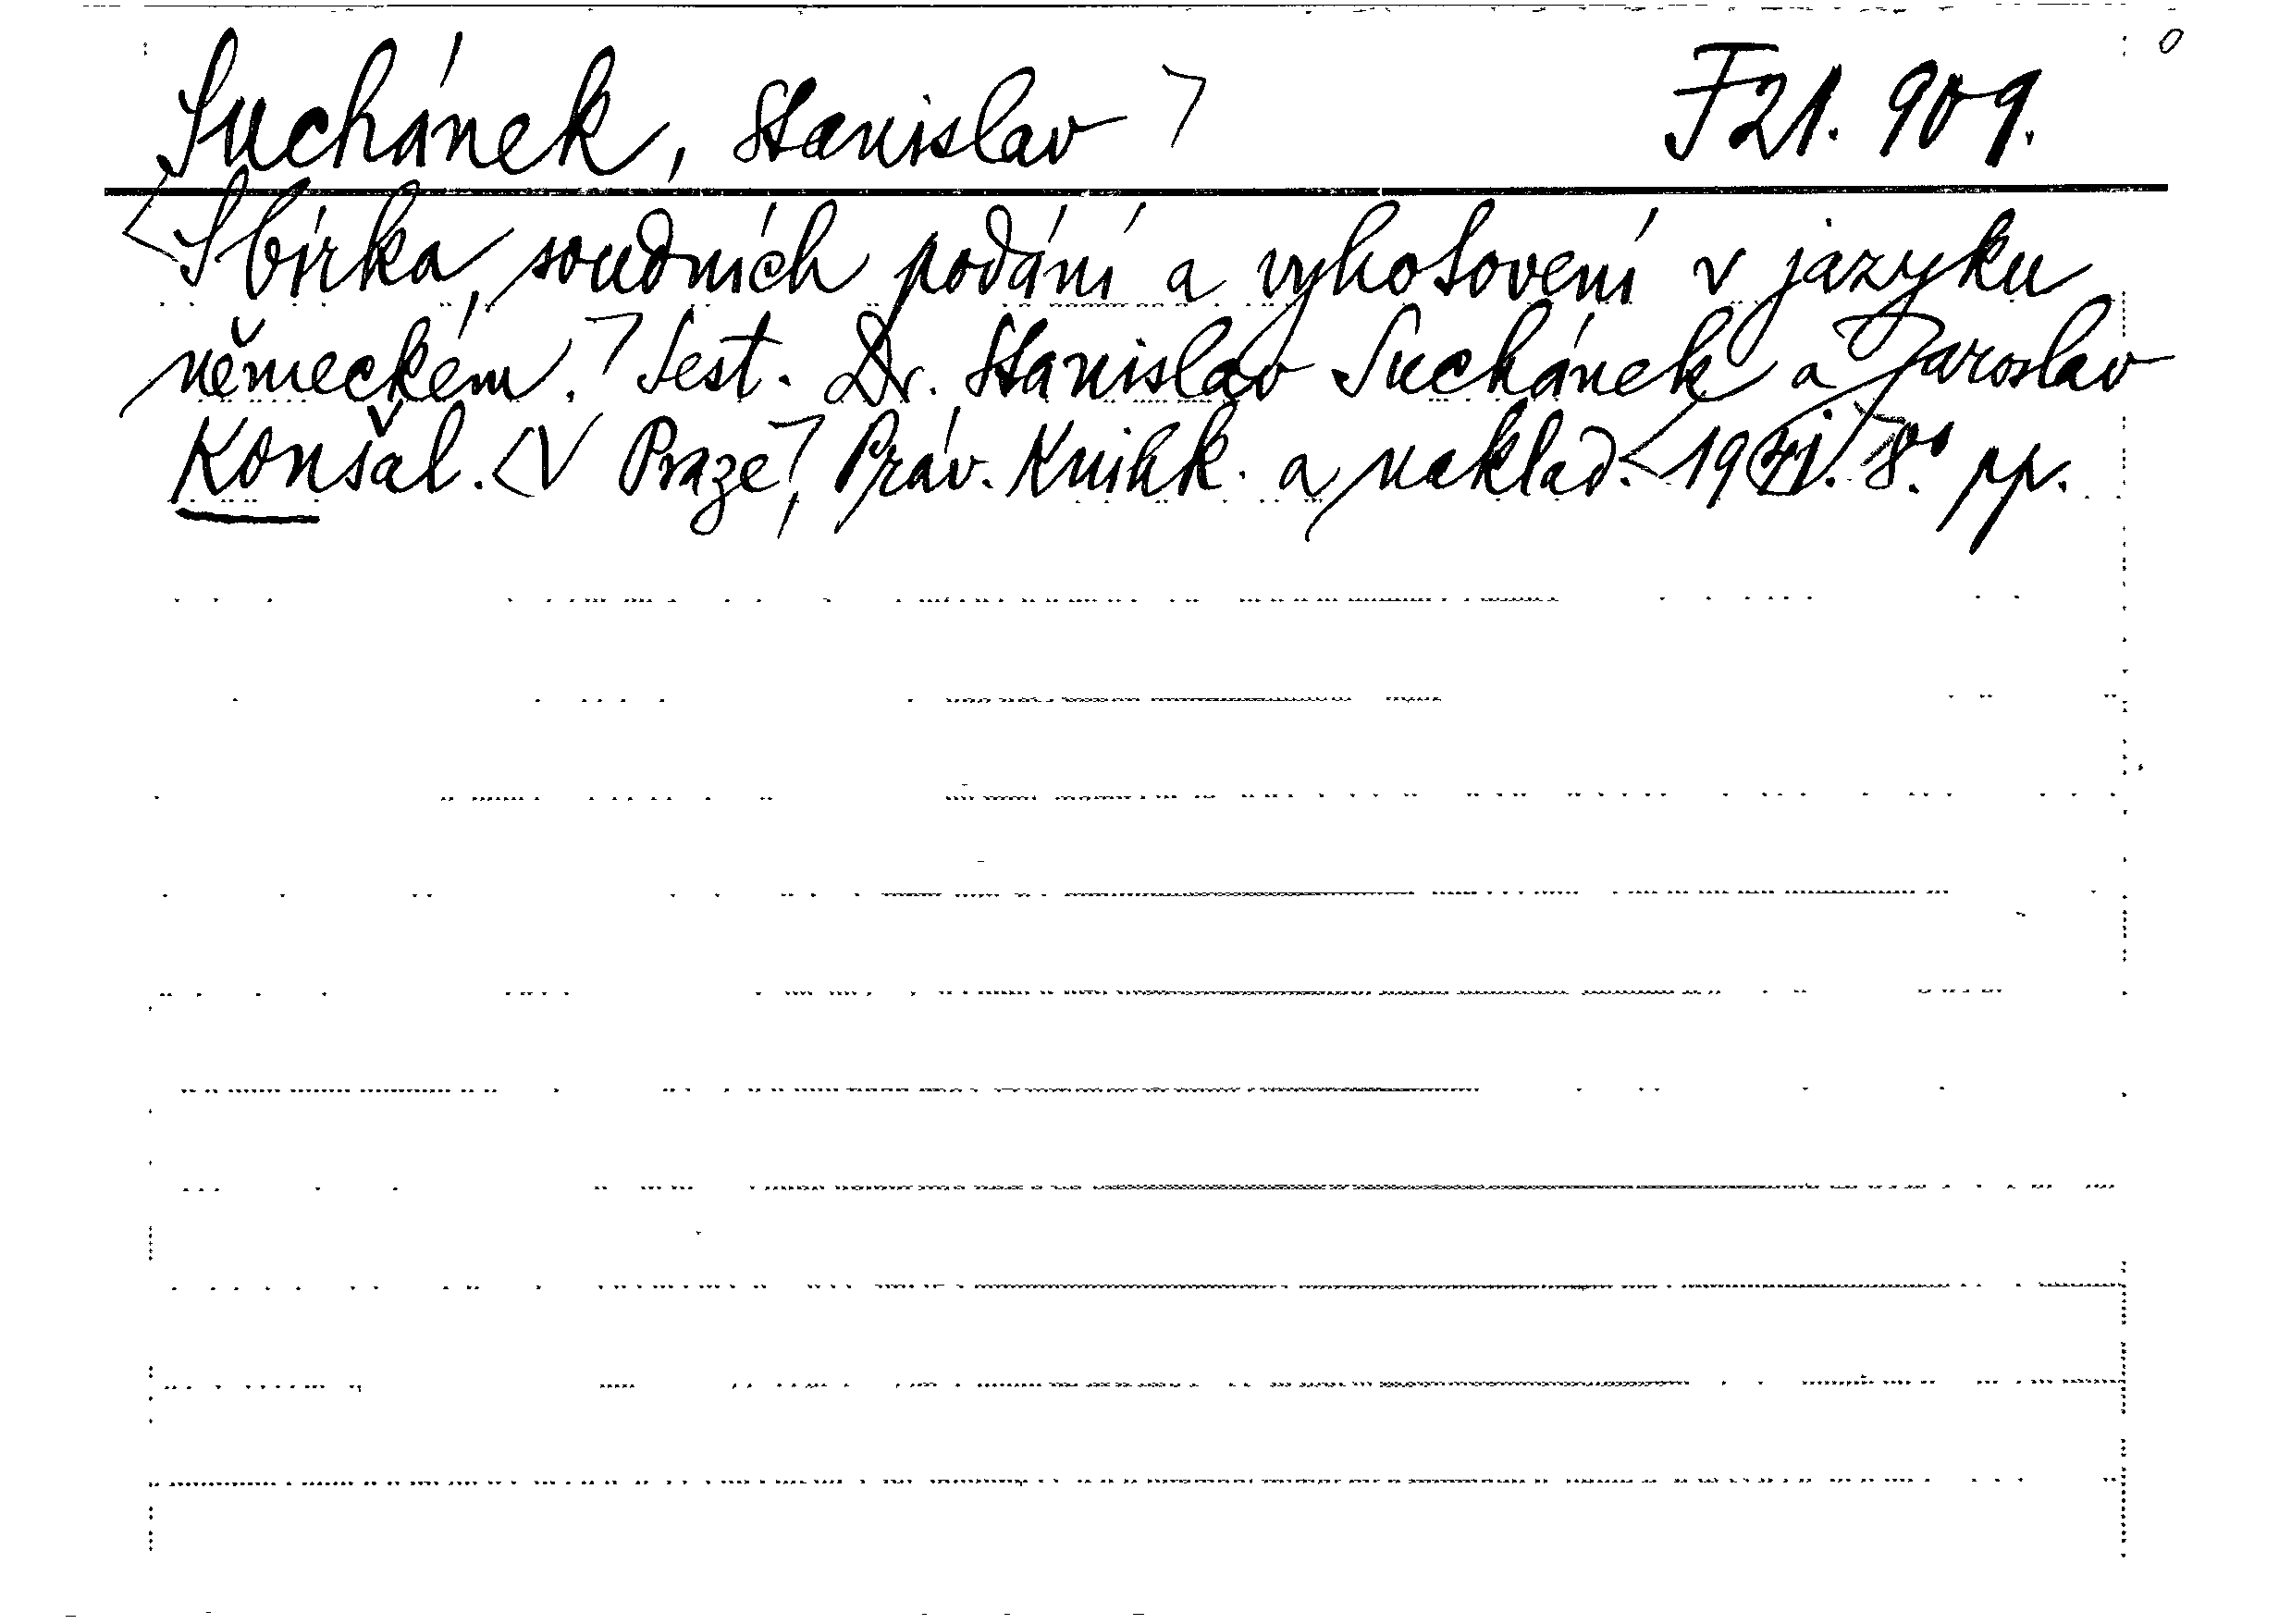 Suchánek, Stanislav> F 21.909.
<Sbírka soudních podání a vyhotovení v jazyku
německém.> Sest. Dr. Stanislav Suchánek a Jaroslav
Konšal. <V Praze>, Práv. Knihk. a naklad. <1941.> 8°. pp.